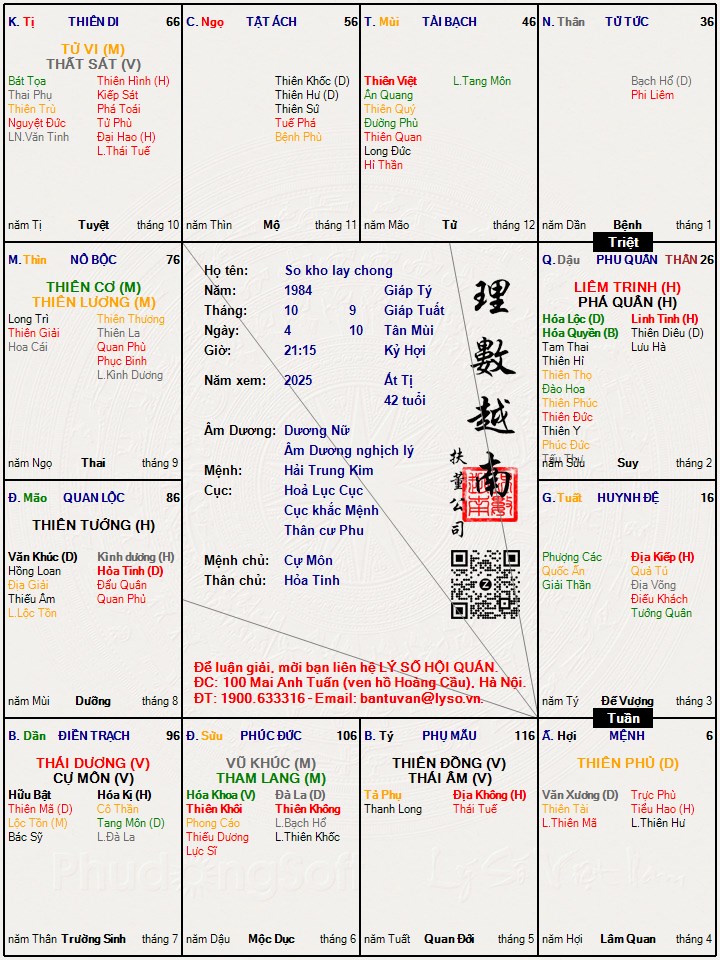 K. Tị THIÊN DI 66
TỬ VI (M)
THẤT SÁT (V)
Bát Tọa Thiên Hình (H)
Thai Phụ Kiếp Sát
Thiên Trù Phá Toái
Nguyệt Đức Tử Phù
LN.Văn Tinh Đại Hao (H)
L.Thái Tuế
năm Tị Tuyệt tháng 10
C. Ngọ TẬT ÁCH 56
Thiên Khốc (D)
Thiên Hư (D)
Thiên Sứ
Tuế Phá
Bệnh Phù
năm Thìn Mộ tháng 11
T. Mùi TÀI BẠCH 46
Thiên Việt L.Tang Môn
Ân Quang
Thiên Quý
Đường Phù
Thiên Quan
Long Đức
Hỉ Thần
năm Mão Tử tháng 12
N. Thân TỬ TỨC 36
Bạch Hổ (D)
Phi Liêm
năm Dần Bệnh tháng 1
Triệt
M. Thìn NÔ BỘC 76
THIÊN CƠ (M)
THIÊN LƯƠNG (M)
Long Trì Thiên Thương
Thiên Giải Thiên La
Hoa Cái Quan Phù
Phục Binh
L.Kình Dương
năm Ngọ Thai tháng 9
Họ tên: So kho lay chong
Năm: 1984 Giáp Tý
Tháng: 10 9 Giáp Tuất
Ngày: 4 10 Tân Mùi
Giờ: 21:15 Kỷ Hợi
Năm xem: 2025 Ất Tị
42 tuổi
Âm Dương: Dương Nữ
Âm Dương nghịch lý
Mệnh: Hải Trung Kim
Cục: Hoả Lục Cục
Cục khắc Mệnh
Thân cư Phu
Mệnh chủ: Cự Môn
Thân chủ: Hỏa Tinh
理數越南
扶董公司
Để luận giải, mời bạn liên hệ LÝ SỐ HỘI QUÁN.
ĐC: 100 Mai Anh Tuấn (ven hồ Hoàng Cầu), Hà Nội.
ĐT: 1900.633316 - Email: bantuvan@lyso.vn.
Q. Dậu PHU QUÂN THÂN 26
LIÊM TRINH (H)
PHÁ QUÂN (H)
Hóa Lộc (D) Linh Tinh (H)
Hóa Quyền (B) Thiên Diêu (D)
Tam Thai Lưu Hà
Thiên Hỉ
Thiên Thọ
Đào Hoa
Thiên Phúc
Thiên Đức
Thiên Y
Phúc Đức
Tấu Thư
năm Sửu Suy tháng 2
Đ. Mão QUAN LỘC 86
THIÊN TƯỚNG (H)
Văn Khúc (D) Kình dương (H)
Hồng Loan Hỏa Tinh (D)
Địa Giải Đẩu Quân
Thiếu Âm Quan Phủ
L.Lộc Tồn
năm Mùi Dưỡng tháng 8
G. Tuất HUYNH ĐỆ 16
Phượng Các Địa Kiếp (H)
Quốc Ấn Quả Tú
Giải Thần Địa Võng
Điếu Khách
Tướng Quân
năm Tý Đế Vượng tháng 3
Tuần
B. Dần ĐIỀN TRẠCH 96
THÁI DƯƠNG (V)
CỰ MÔN (V)
Hữu Bật Hóa Kị (H)
Thiên Mã (D) Cô Thần
Lộc Tồn (M) Tang Môn (D)
Bác Sỹ L.Đà La
năm Thân Trường Sinh tháng 7
Đ. Sửu PHÚC ĐỨC 106
VŨ KHÚC (M)
THAM LANG (M)
Hóa Khoa (V) Đà La (D)
Thiên Khôi Thiên Không
Phong Cáo L.Bạch Hổ
Thiếu Dương L.Thiên Khốc
Lực Sĩ
năm Dậu Mộc Dục tháng 6
B. Tý PHỤ MẪU 116
THIÊN ĐỒNG (V)
THÁI ÂM (V)
Tả Phụ Địa Không (H)
Thanh Long Thái Tuế
năm Tuất Quan Đới tháng 5
Ấ. Hợi MỆNH 6
THIÊN PHỦ (D)
Văn Xương (D) Trực Phù
Thiên Tài Tiểu Hao (H)
L.Thiên Mã L.Thiên Hư
năm Hợi Lâm Quan tháng 4